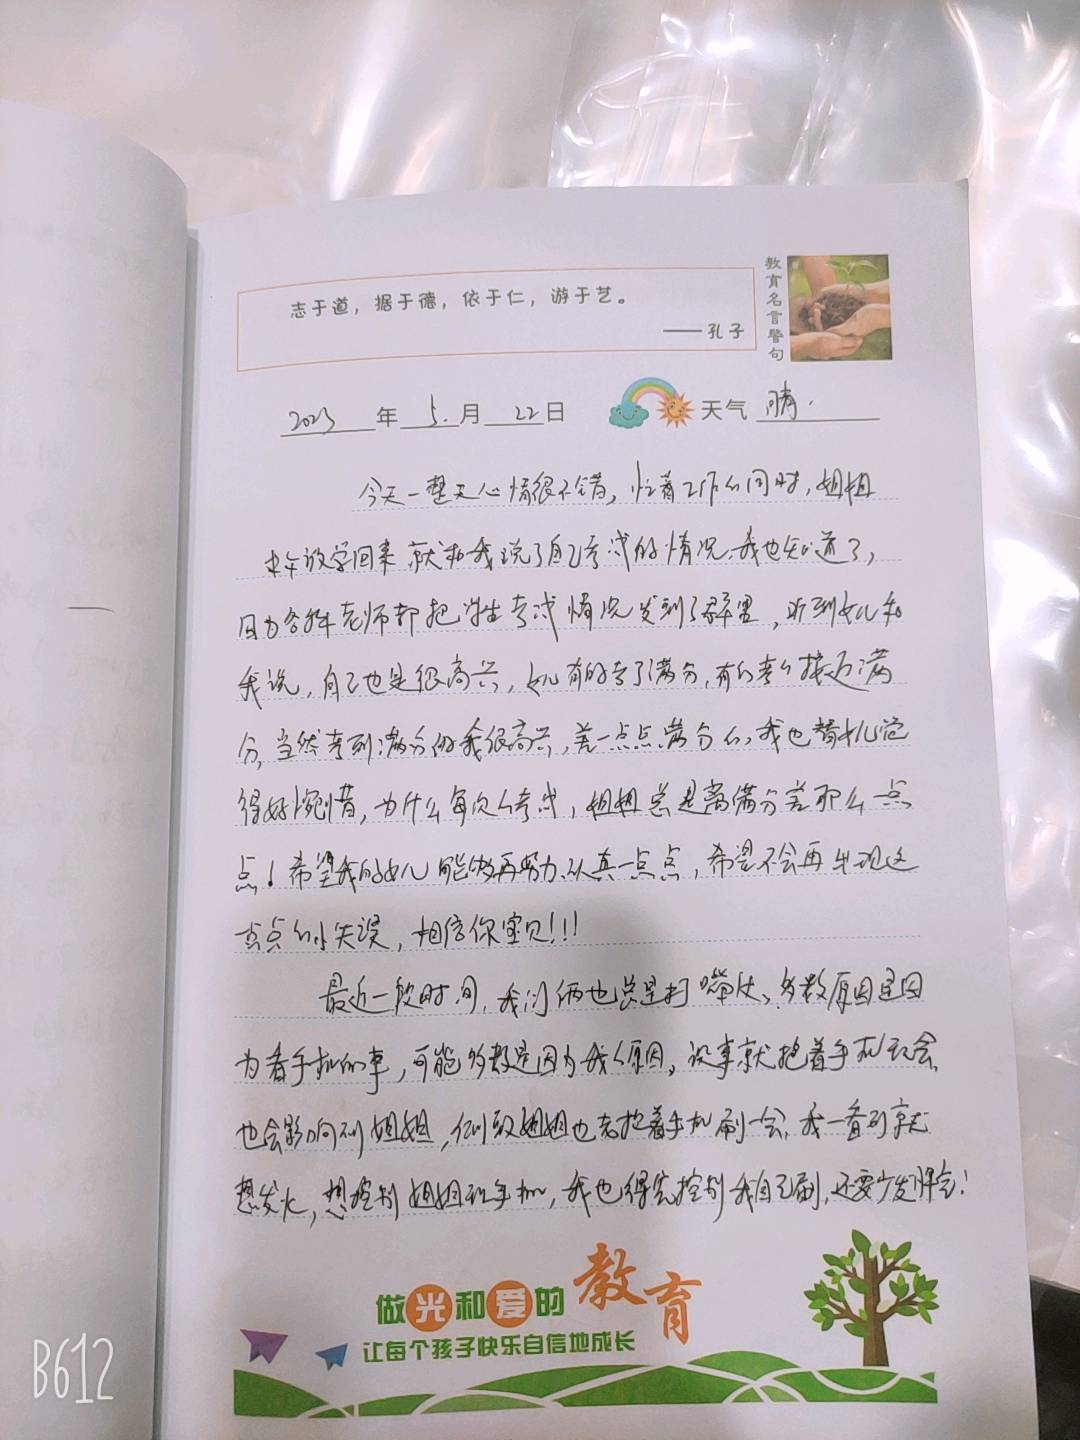 志于道，据于德，依于仁，游于艺。
——孔子
教育名言警句
2023年5.月22日 天气 晴.
今天一整天心情很不错，忙着工作的同时，姐姐
中午放学回来就和我说了自己考试的情况，我也知道了，
因为各科老师都把学生考试情况发到了群里，听到女儿和
我说，自己也是很高兴，女儿有的考了满分，有的考的接近满
分，当然考到满分的我很高兴，差一点点满分的，我也替女儿觉
得好惋惜，为什么每次的考试，姐姐总是离满分差那么一点
点！希望我的女儿能够再努力、认真一点点，希望不会再出现这
点点的小失误，相信你宝贝!!!
最近一段时间，我们俩也总是打嘴仗、多数原因是因
为看手机的事，可能多数是因为我的原因，没事就抱着手机玩会
也会影响到姐姐，以致姐姐也去抱着手机刷一会，我一看到就
想发火，想控制姐姐玩手机，我也得先控制我自己刷，还要少发脾气！
做光和爱的教育
让每个孩子快乐自信地成长
B612